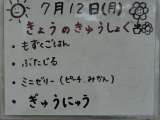 7月12日(月)
きょうのきゅうしょく
・もずくごはん
・ぶたじる
・ミニゼリー(ピーチ,みかん)
・ぎゅうにゅう